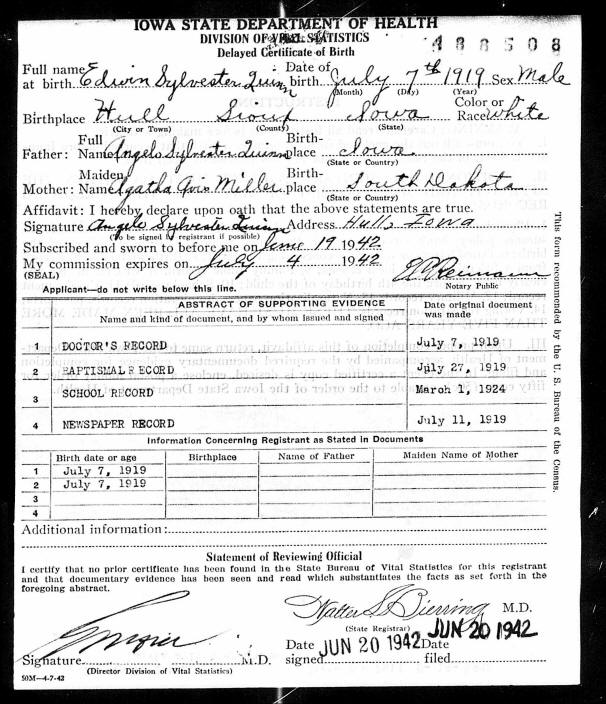 IOWA STATE DEPARTMENT OF HEALTH
DIVISION OF VITAL STATISTICS
Delayed Certificate of Birth
488508
Full name at birth Edwin Sylvester Quinn Date of birth July 7th 1919 Sex Male
(Month) (Day) (Year)
Birthplace Hull Sioux Iowa Color or Race White
(City or Town) (County) (State)
Father: Full Name Angelo Sylvester Quinn Birth-place Iowa
(State or Country)
Mother: Maiden Name Agatha Avis Miller Birth-place South Dakota
(State or Country)
Affidavit: I hereby declare upon oath that the above statements are true.
Signature Angelo Sylvester Quinn Address Hull, Iowa
(To be signed by registrant if possible)
Subscribed and sworn to before me on June 19 1942
My commission expires on July 4 1942
(SEAL) Notary Public
Applicant—do not write below this line.
ABSTRACT OF SUPPORTING EVIDENCE
Name and kind of document, and by whom issued and signed
Date original document was made
1 DOCTOR'S RECORD July 7, 1919
2 BAPTISMAL RECORD July 27, 1919
3 SCHOOL RECORD March 1, 1924
4 NEWSPAPER RECORD July 11, 1919
Information Concerning Registrant as Stated in Documents
Birth date or age Birthplace Name of Father Maiden Name of Mother
1 July 7, 1919
2 July 7, 1919
3
4
Additional information:
Statement of Reviewing Official
I certify that no prior certificate has been found in the State Bureau of Vital Statistics for this registrant
and that documentary evidence has been seen and read which substantiates the facts as set forth in the
foregoing abstract.
Walter L Bierring M.D.
(State Registrar)
Signature M.D. Date signed JUN 20 1942 Date filed JUN 20 1942
(Director Division of Vital Statistics)
50M—4-7-42
This form recommended by the U. S. Bureau of the Census.